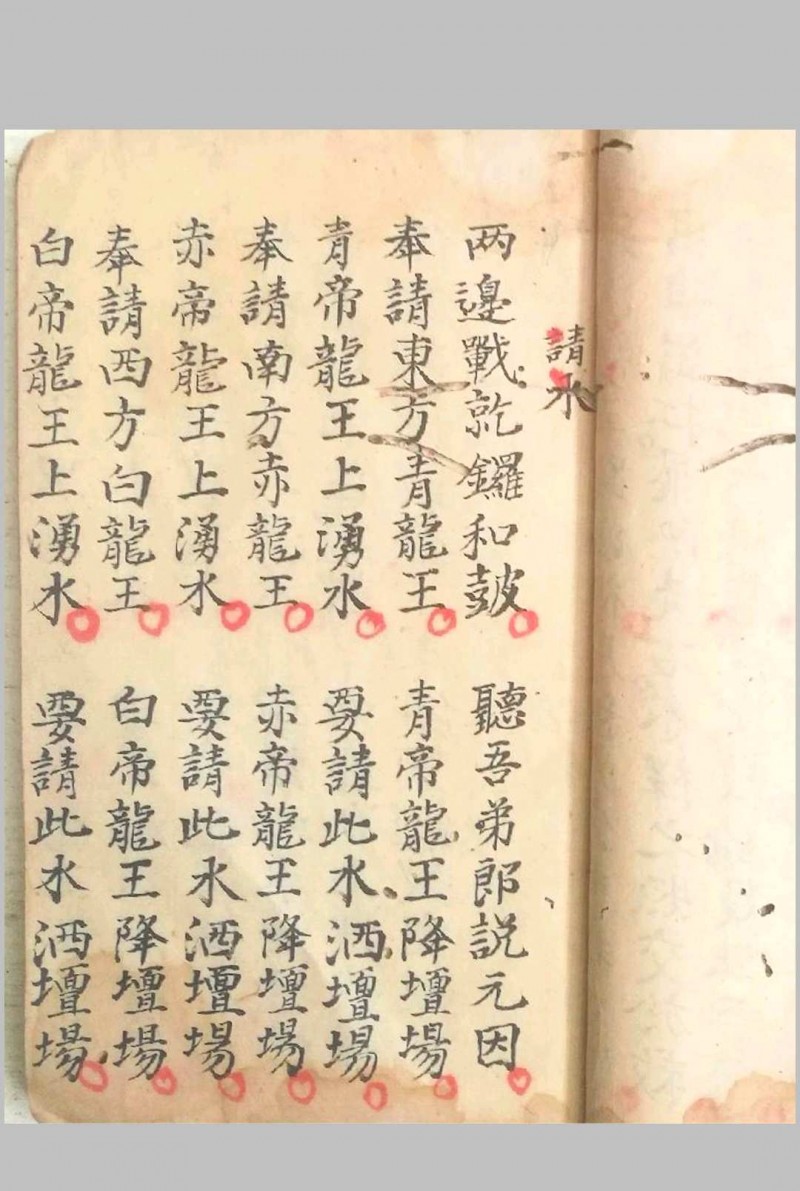 請水
两邊戰乾鑼和皷
聽吾弟郎説元因
奉請東方青龍王
青帝龍王降壇場
青帝龍王上湧水
要請此水洒壇場
奉請南方赤龍王
赤帝龍王降壇場
赤帝龍王上湧水
要請此水洒壇場
奉請西方白龍王
白帝龍王降壇場
白帝龍王上湧水
要請此水洒壇場